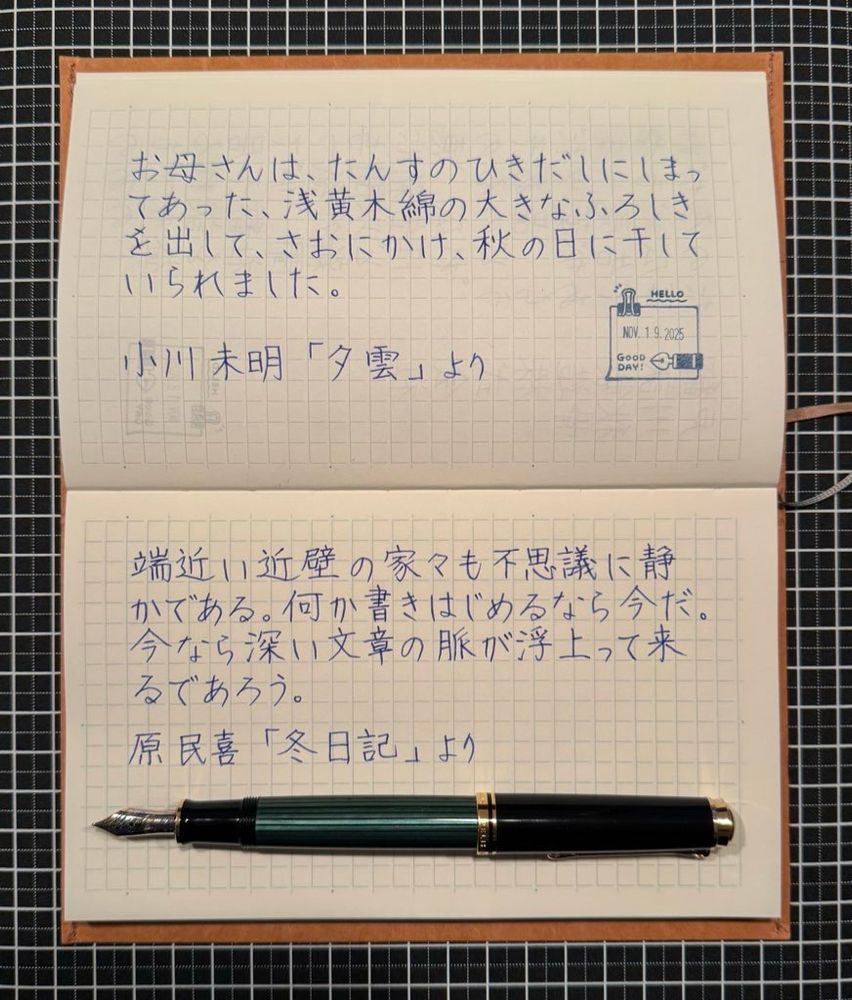 お母さんは、たんすのひきだしにしまっ
てあった、浅黄木綿の大きなふろしき
を出して、さおにかけ、秋の日に干して
いられました。
HELLO
NOV. 1.9.2025
GOOD
DAY!
小川未明「夕雲」より
端近い近壁の家々も不思議に静
かである。何か書きはじめるなら今だ。
今なら深い文章の脈が浮上って来
るであろう。
原民喜「冬日記」より